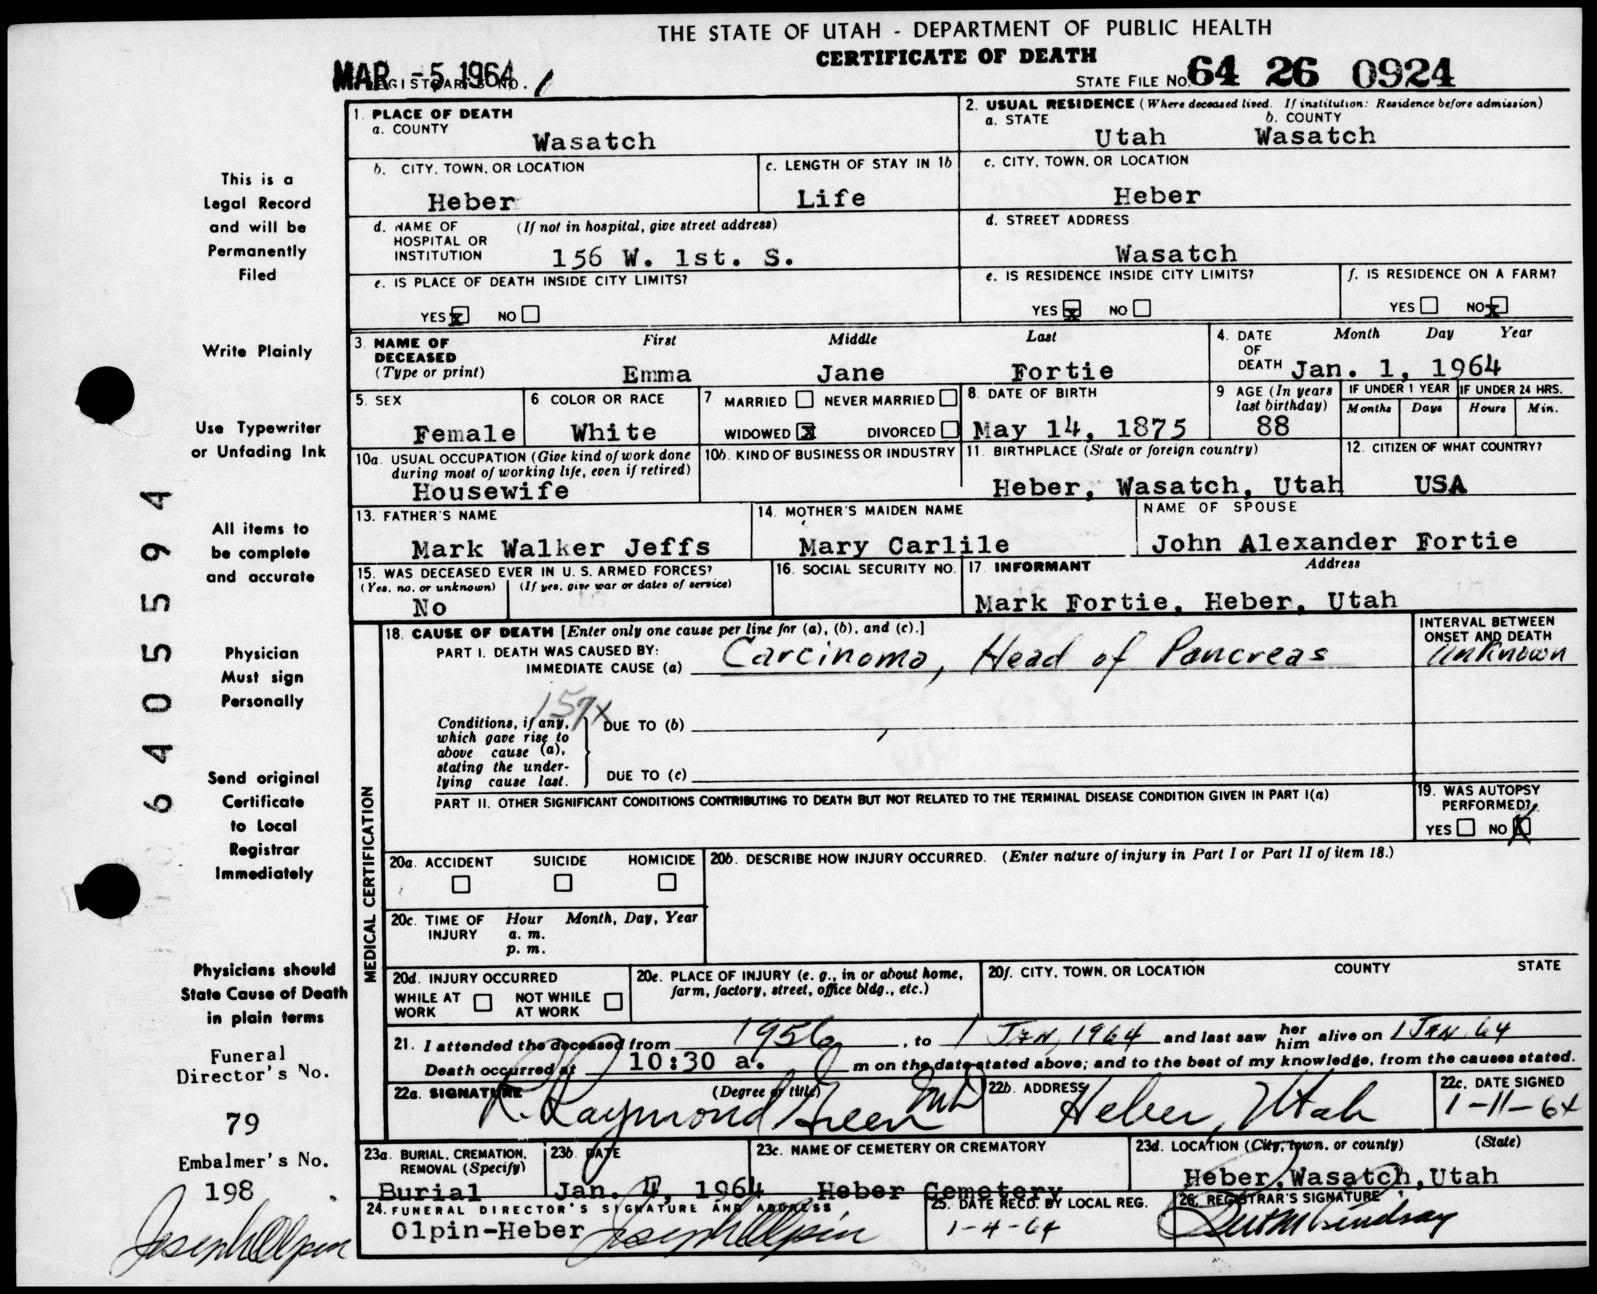 THE STATE OF UTAH - DEPARTMENT OF PUBLIC HEALTH
CERTIFICATE OF DEATH
MAR -5 1964 REGISTRAR'S NO. 1
STATE FILE NO. 64 26 0924
1. PLACE OF DEATH
a. COUNTY
Wasatch
2. USUAL RESIDENCE (Where deceased lived. If institution: Residence before admission)
a. STATE b. COUNTY
Utah Wasatch
b. CITY, TOWN, OR LOCATION
Heber
c. LENGTH OF STAY IN 1b
Life
c. CITY, TOWN, OR LOCATION
Heber
d. NAME OF HOSPITAL OR INSTITUTION (If not in hospital, give street address)
156 W. 1st. S.
d. STREET ADDRESS
Wasatch
e. IS PLACE OF DEATH INSIDE CITY LIMITS?
YES x NO
e. IS RESIDENCE INSIDE CITY LIMITS?
YES x NO
f. IS RESIDENCE ON A FARM?
YES NO x
3. NAME OF DECEASED (Type or print)
First Middle Last
Emma Jane Fortie
4. DATE OF DEATH Month Day Year
Jan. 1, 1964
5. SEX
Female
6. COLOR OR RACE
White
7 MARRIED NEVER MARRIED
WIDOWED x DIVORCED
8. DATE OF BIRTH
May 14, 1875
9 AGE (In years last birthday)
88
IF UNDER 1 YEAR IF UNDER 24 HRS.
Months Days Hours Min.
10a. USUAL OCCUPATION (Give kind of work done during most of working life, even if retired)
Housewife
10b. KIND OF BUSINESS OR INDUSTRY
11. BIRTHPLACE (State or foreign country)
Heber, Wasatch, Utah
12. CITIZEN OF WHAT COUNTRY?
USA
13. FATHER'S NAME
Mark Walker Jeffs
14. MOTHER'S MAIDEN NAME
Mary Carlile
NAME OF SPOUSE
John Alexander Fortie
15. WAS DECEASED EVER IN U. S. ARMED FORCES?
(Yes, no, or unknown) (If yes, give war or dates of service)
No
16. SOCIAL SECURITY NO.
17. INFORMANT Address
Mark Fortie, Heber, Utah
MEDICAL CERTIFICATION
18. CAUSE OF DEATH [Enter only one cause per line for (a), (b), and (c).]
PART I. DEATH WAS CAUSED BY:
IMMEDIATE CAUSE (a) Carcinoma, Head of Pancreas
INTERVAL BETWEEN ONSET AND DEATH
Unknown
157x
Conditions, if any, which gave rise to above cause (a), stating the underlying cause last.
DUE TO (b)
DUE TO (c)
PART II. OTHER SIGNIFICANT CONDITIONS CONTRIBUTING TO DEATH BUT NOT RELATED TO THE TERMINAL DISEASE CONDITION GIVEN IN PART I(a)
19. WAS AUTOPSY PERFORMED?
YES NO X
20a. ACCIDENT SUICIDE HOMICIDE
20b. DESCRIBE HOW INJURY OCCURRED. (Enter nature of injury in Part I or Part II of item 18.)
20c. TIME OF INJURY Hour Month, Day, Year
a. m.
p. m.
20d. INJURY OCCURRED
WHILE AT WORK NOT WHILE AT WORK
20e. PLACE OF INJURY (e. g., in or about home, farm, factory, street, office bldg., etc.)
20f. CITY, TOWN, OR LOCATION COUNTY STATE
21. I attended the deceased from 1956, to 1 Jan, 1964 and last saw her him alive on 1 Jan 64
Death occurred at 10:30 a. m on the date stated above; and to the best of my knowledge, from the causes stated.
22a. SIGNATURE (Degree or title)
R. Raymond Green MD
22b. ADDRESS
Heber, Utah
22c. DATE SIGNED
1-11-64
23a. BURIAL, CREMATION, REMOVAL (Specify)
Burial
23b. DATE
Jan. 4, 1964
23c. NAME OF CEMETERY OR CREMATORY
Heber Cemetery
23d. LOCATION (City, town, or county) (State)
Heber, Wasatch, Utah
24. FUNERAL DIRECTOR'S SIGNATURE AND ADDRESS
Olpin-Heber Joseph Olpin
25. DATE RECD. BY LOCAL REG.
1-4-64
26. REGISTRAR'S SIGNATURE
Lindsay
This is a
Legal Record
and will be
Permanently
Filed
Write Plainly
Use Typewriter
or Unfading Ink
All items to
be complete
and accurate
Physician
Must sign
Personally
Send original
Certificate
to Local
Registrar
Immediately
Physicians should
State Cause of Death
in plain terms
Funeral
Director's No.
79
Embalmer's No.
198
Joseph Olpin
64055594